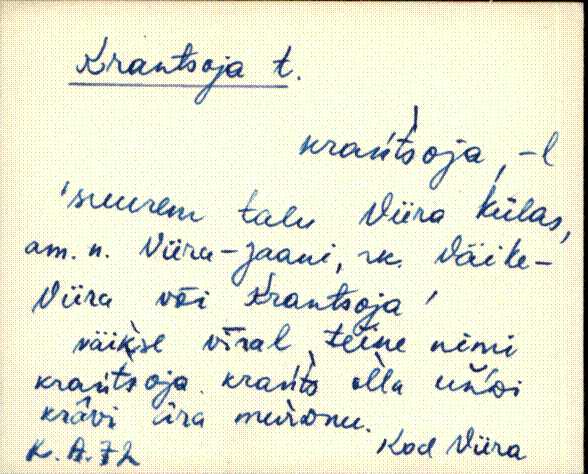 Krantsoja t.
krań̀tsoja, -l
'suurem talu Viira külas,
am. n. Viira-Jaani, rk. Väike-
Viira või Krantsoja'
väikse vīral teine nimi
krańtsoja. krańts olla
krāvi ära
K. A. 72 Kod Viira